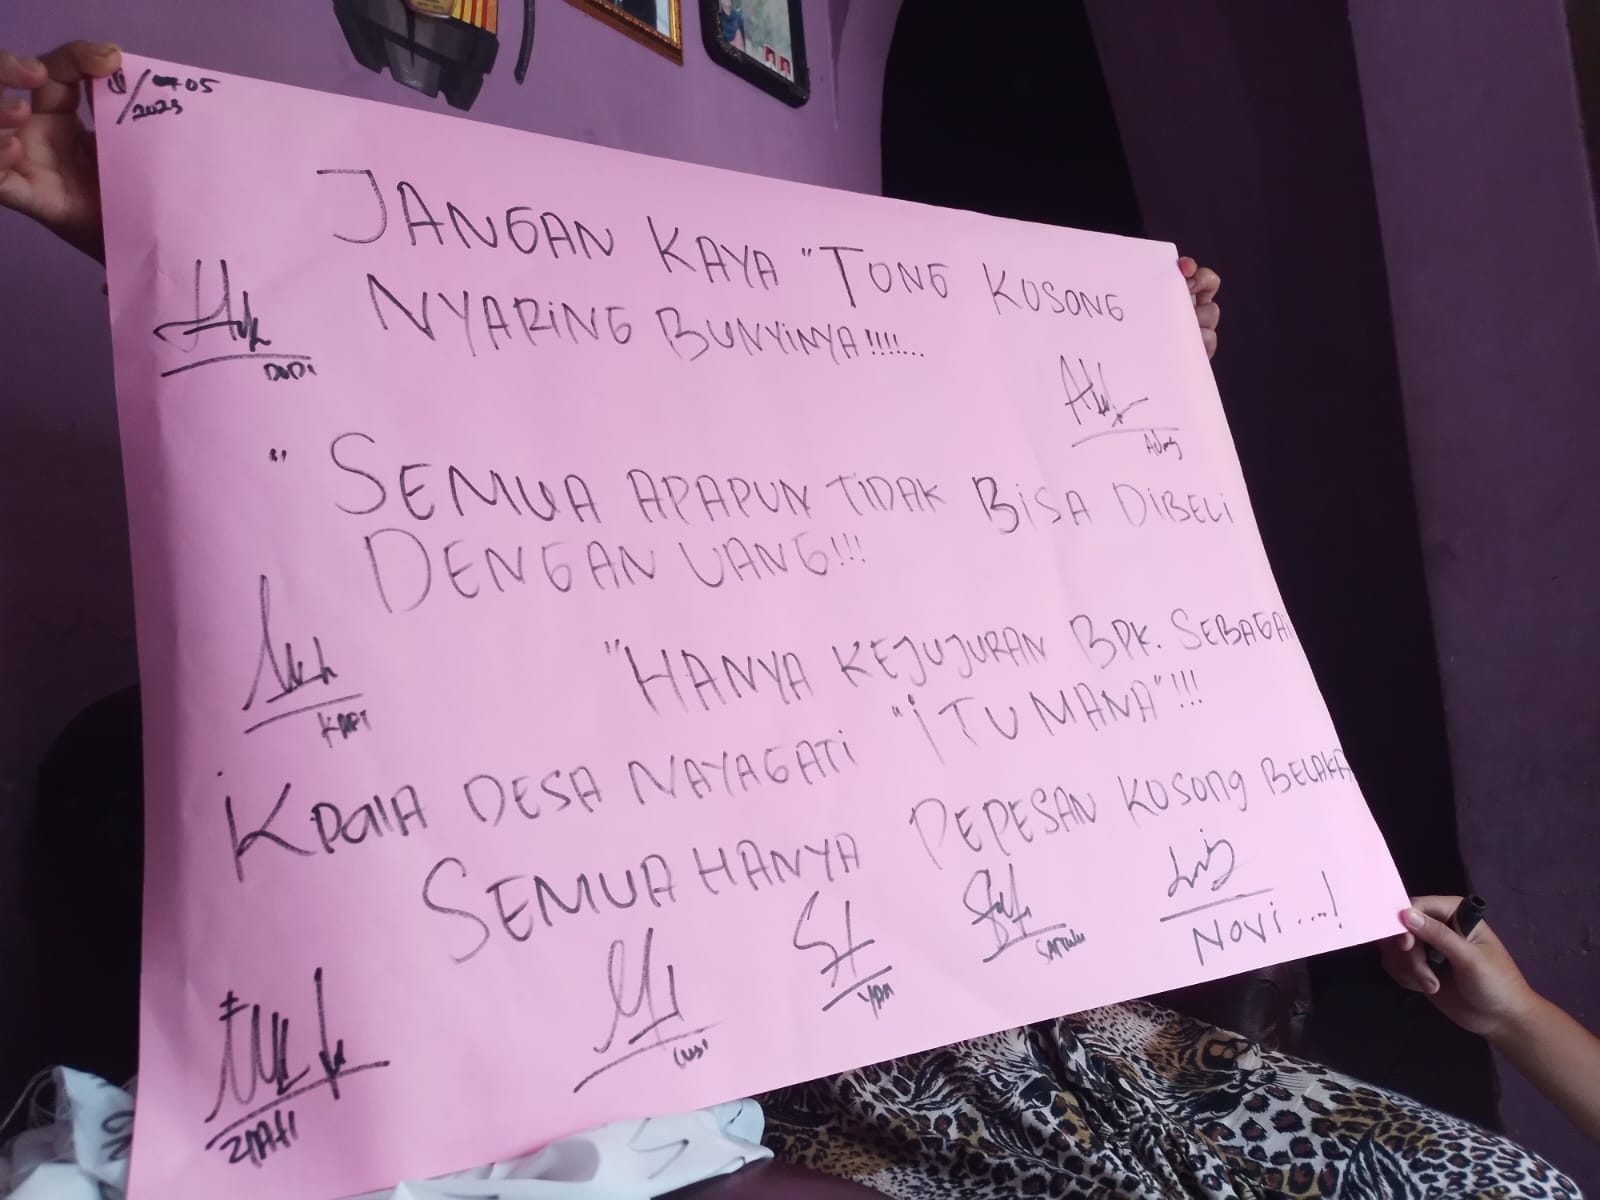 05
2023
JANGAN KAYA "TONG KOSONG
NYARING BUNYINYA!!!!...
DODI
" SEMUA APAPUN TIDAK BISA DIBELI
DENGAN UANG!!!
"HANYA KEJUJURAN BPK. SEBAGAI
KPALA DESA NAYAGATI "ITU MANA"!!!
SEMUA HANYA PEPESAN KOSONG BELAKA
NOVI....!